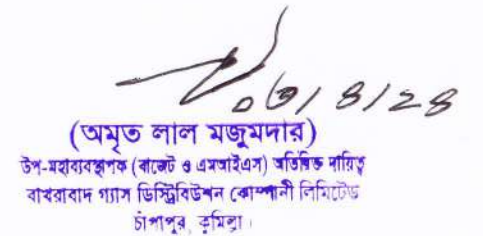 ০৩/৪/২৪
(অমৃত লাল মজুমদার)
উপ-মহাব্যবস্থাপক (বাজেট ও এমআইএস) অতিরিক্ত দায়িত্ব
বাখরাবাদ গ্যাস ডিস্ট্রিবিউশন কোম্পানী লিমিটেড
চাঁপাপুর, কুমিল্লা।